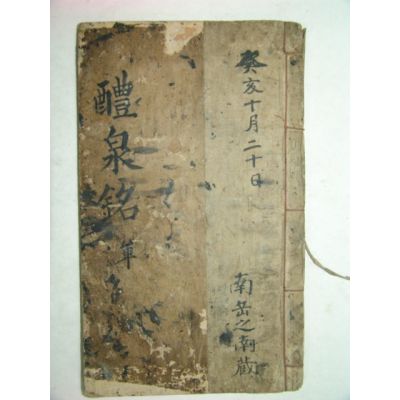 癸亥十月二十日
南岳之南藏
醴泉銘 單